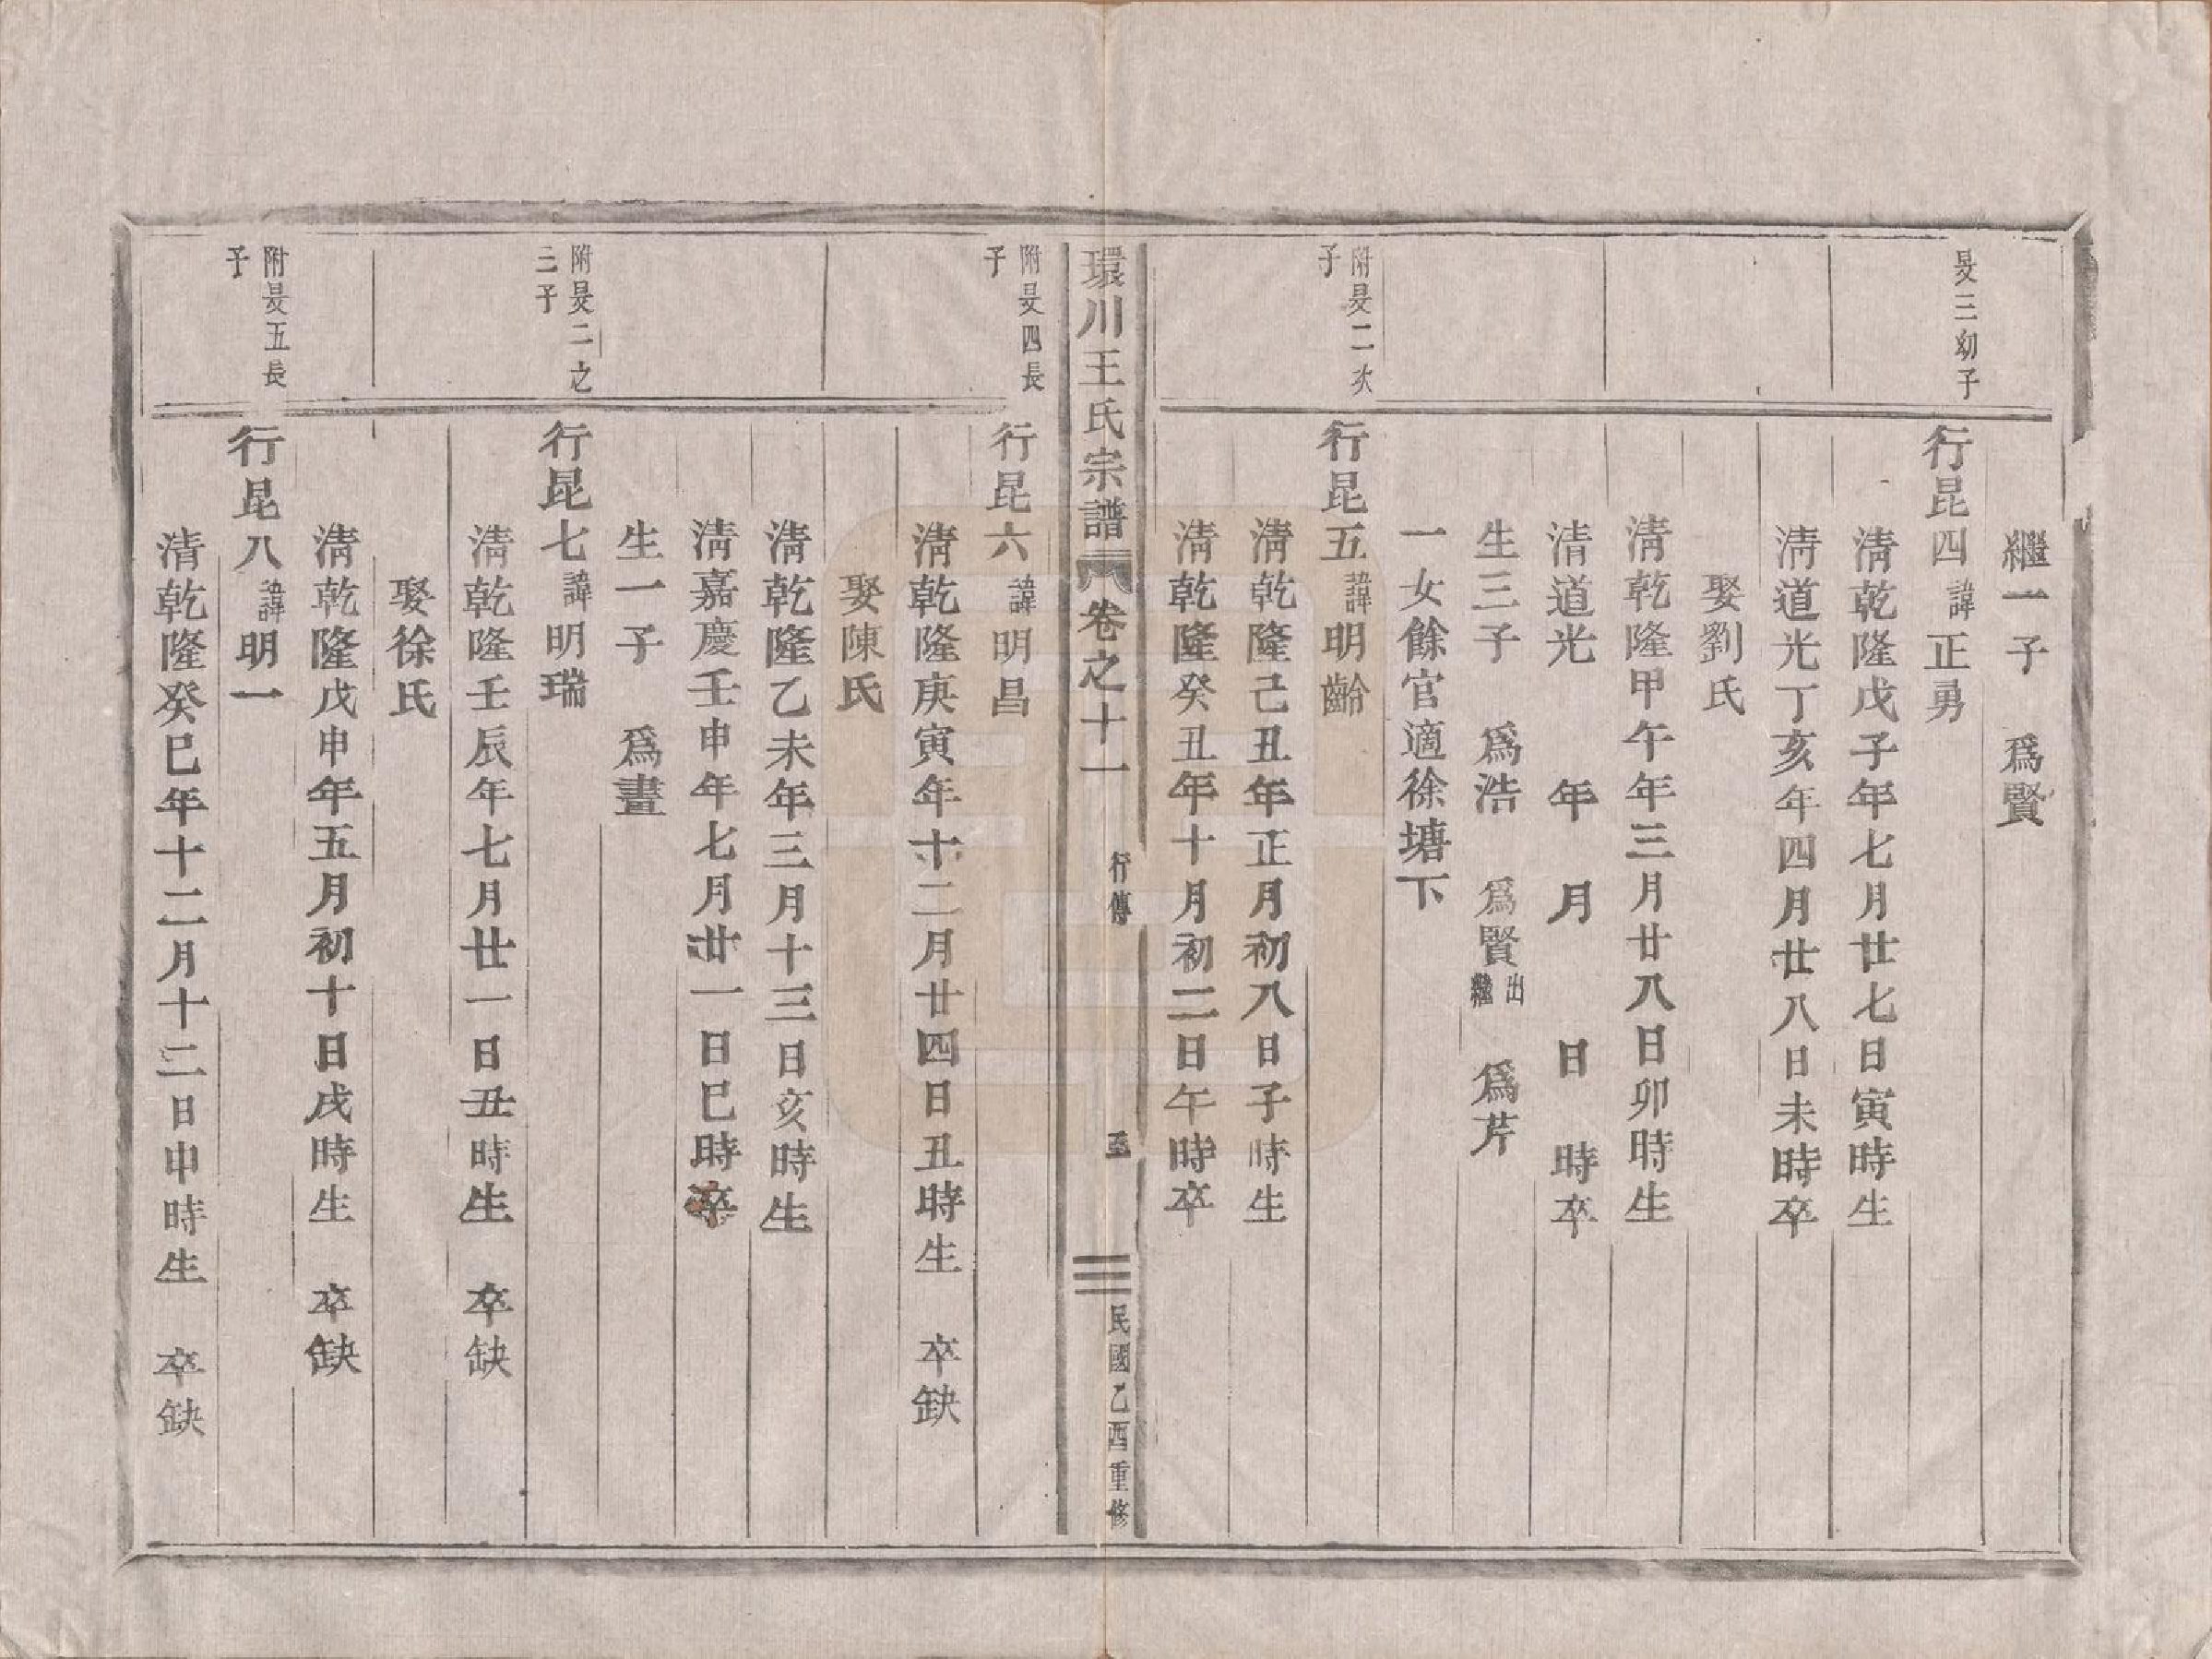 繼一子　爲賢
旻三幼子
行昆四諱正勇
淸乾隆戊子年七月廿七日寅時生
淸道光丁亥年四月廿八日未時卒
娶劉氏
淸乾隆甲午年三月廿八日卯時生
淸道光　年　月　日　時卒
生三子　爲浩　爲賢出繼　爲芹
一女餘官適徐塘下
附旻二次子
行昆五諱明齡
淸乾隆己丑年正月初八日子時生
淸乾隆癸丑年十月初二日午時卒
環川王氏宗譜　卷之十一　行傳　民國乙酉重修
附旻四長子
行昆六諱明昌
淸乾隆庚寅年十二月廿四日丑時生　卒缺
娶陳氏
淸乾隆乙未年三月十三日亥時生
淸嘉慶壬申年七月廿一日巳時卒
生一子　爲晝
附旻二之三子
行昆七諱明瑞
淸乾隆壬辰年七月廿一日丑時生　卒缺
娶徐氏
淸乾隆戊申年五月初十日戌時生　卒缺
附旻五長子
行昆八諱明一
淸乾隆癸巳年十二月十二日申時生　卒缺